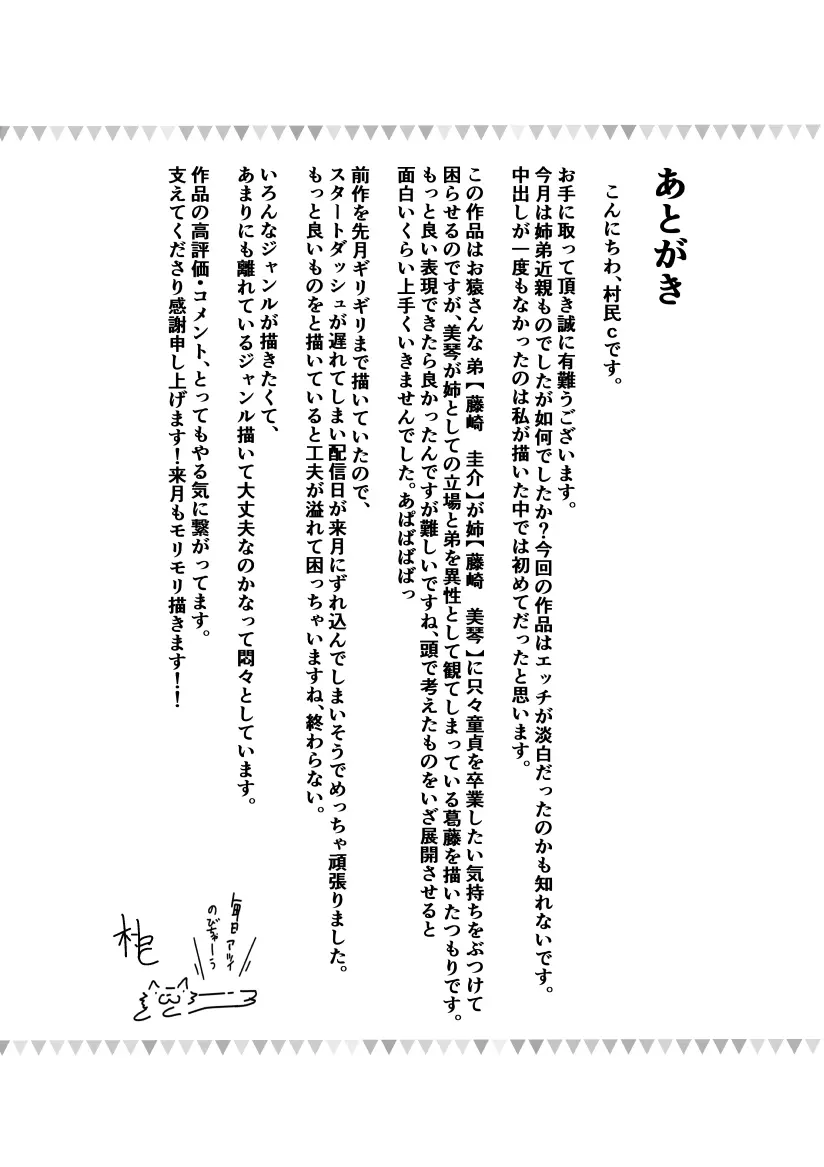 あとがき
こんにちわ、村民cです。
お手に取って頂き誠に有難うございます。
今月は姉弟近親ものでしたが如何でしたか?今回の作品はエッチが淡白だったのかも知れないです。
中出しが一度もなかったのは私が描いた中では初めてだったと思います。
この作品はお猿さんな弟【藤崎 圭介】が姉【藤崎 美琴】に只々童貞を卒業したい気持ちをぶつけて
困らせるのですが、美琴が姉としての立場と弟を異性として観てしまっている葛藤を描いたつもりです。
もっと良い表現できたら良かったんですが難しいですね、頭で考えたものをいざ展開させると
面白いくらい上手くいきませんでした。あぱばばばっ
前作を先月ギリギリまで描いていたので、
スタートダッシュが遅れてしまい配信日が来月にずれ込んでしまいそうでめっちゃ頑張りました。
もっと良いものをと描いていると工夫が溢れて困っちゃいますね、終わらない。
いろんなジャンルが描きたくて、
あまりにも離れているジャンル描いて大丈夫なのかなって悶々としています。
作品の高評価・コメント、とってもやる気に繋がってます。
支えてくださり感謝申し上げます!来月もモリモリ描きます!!
毎日アツイ
のびちゃーう
村民